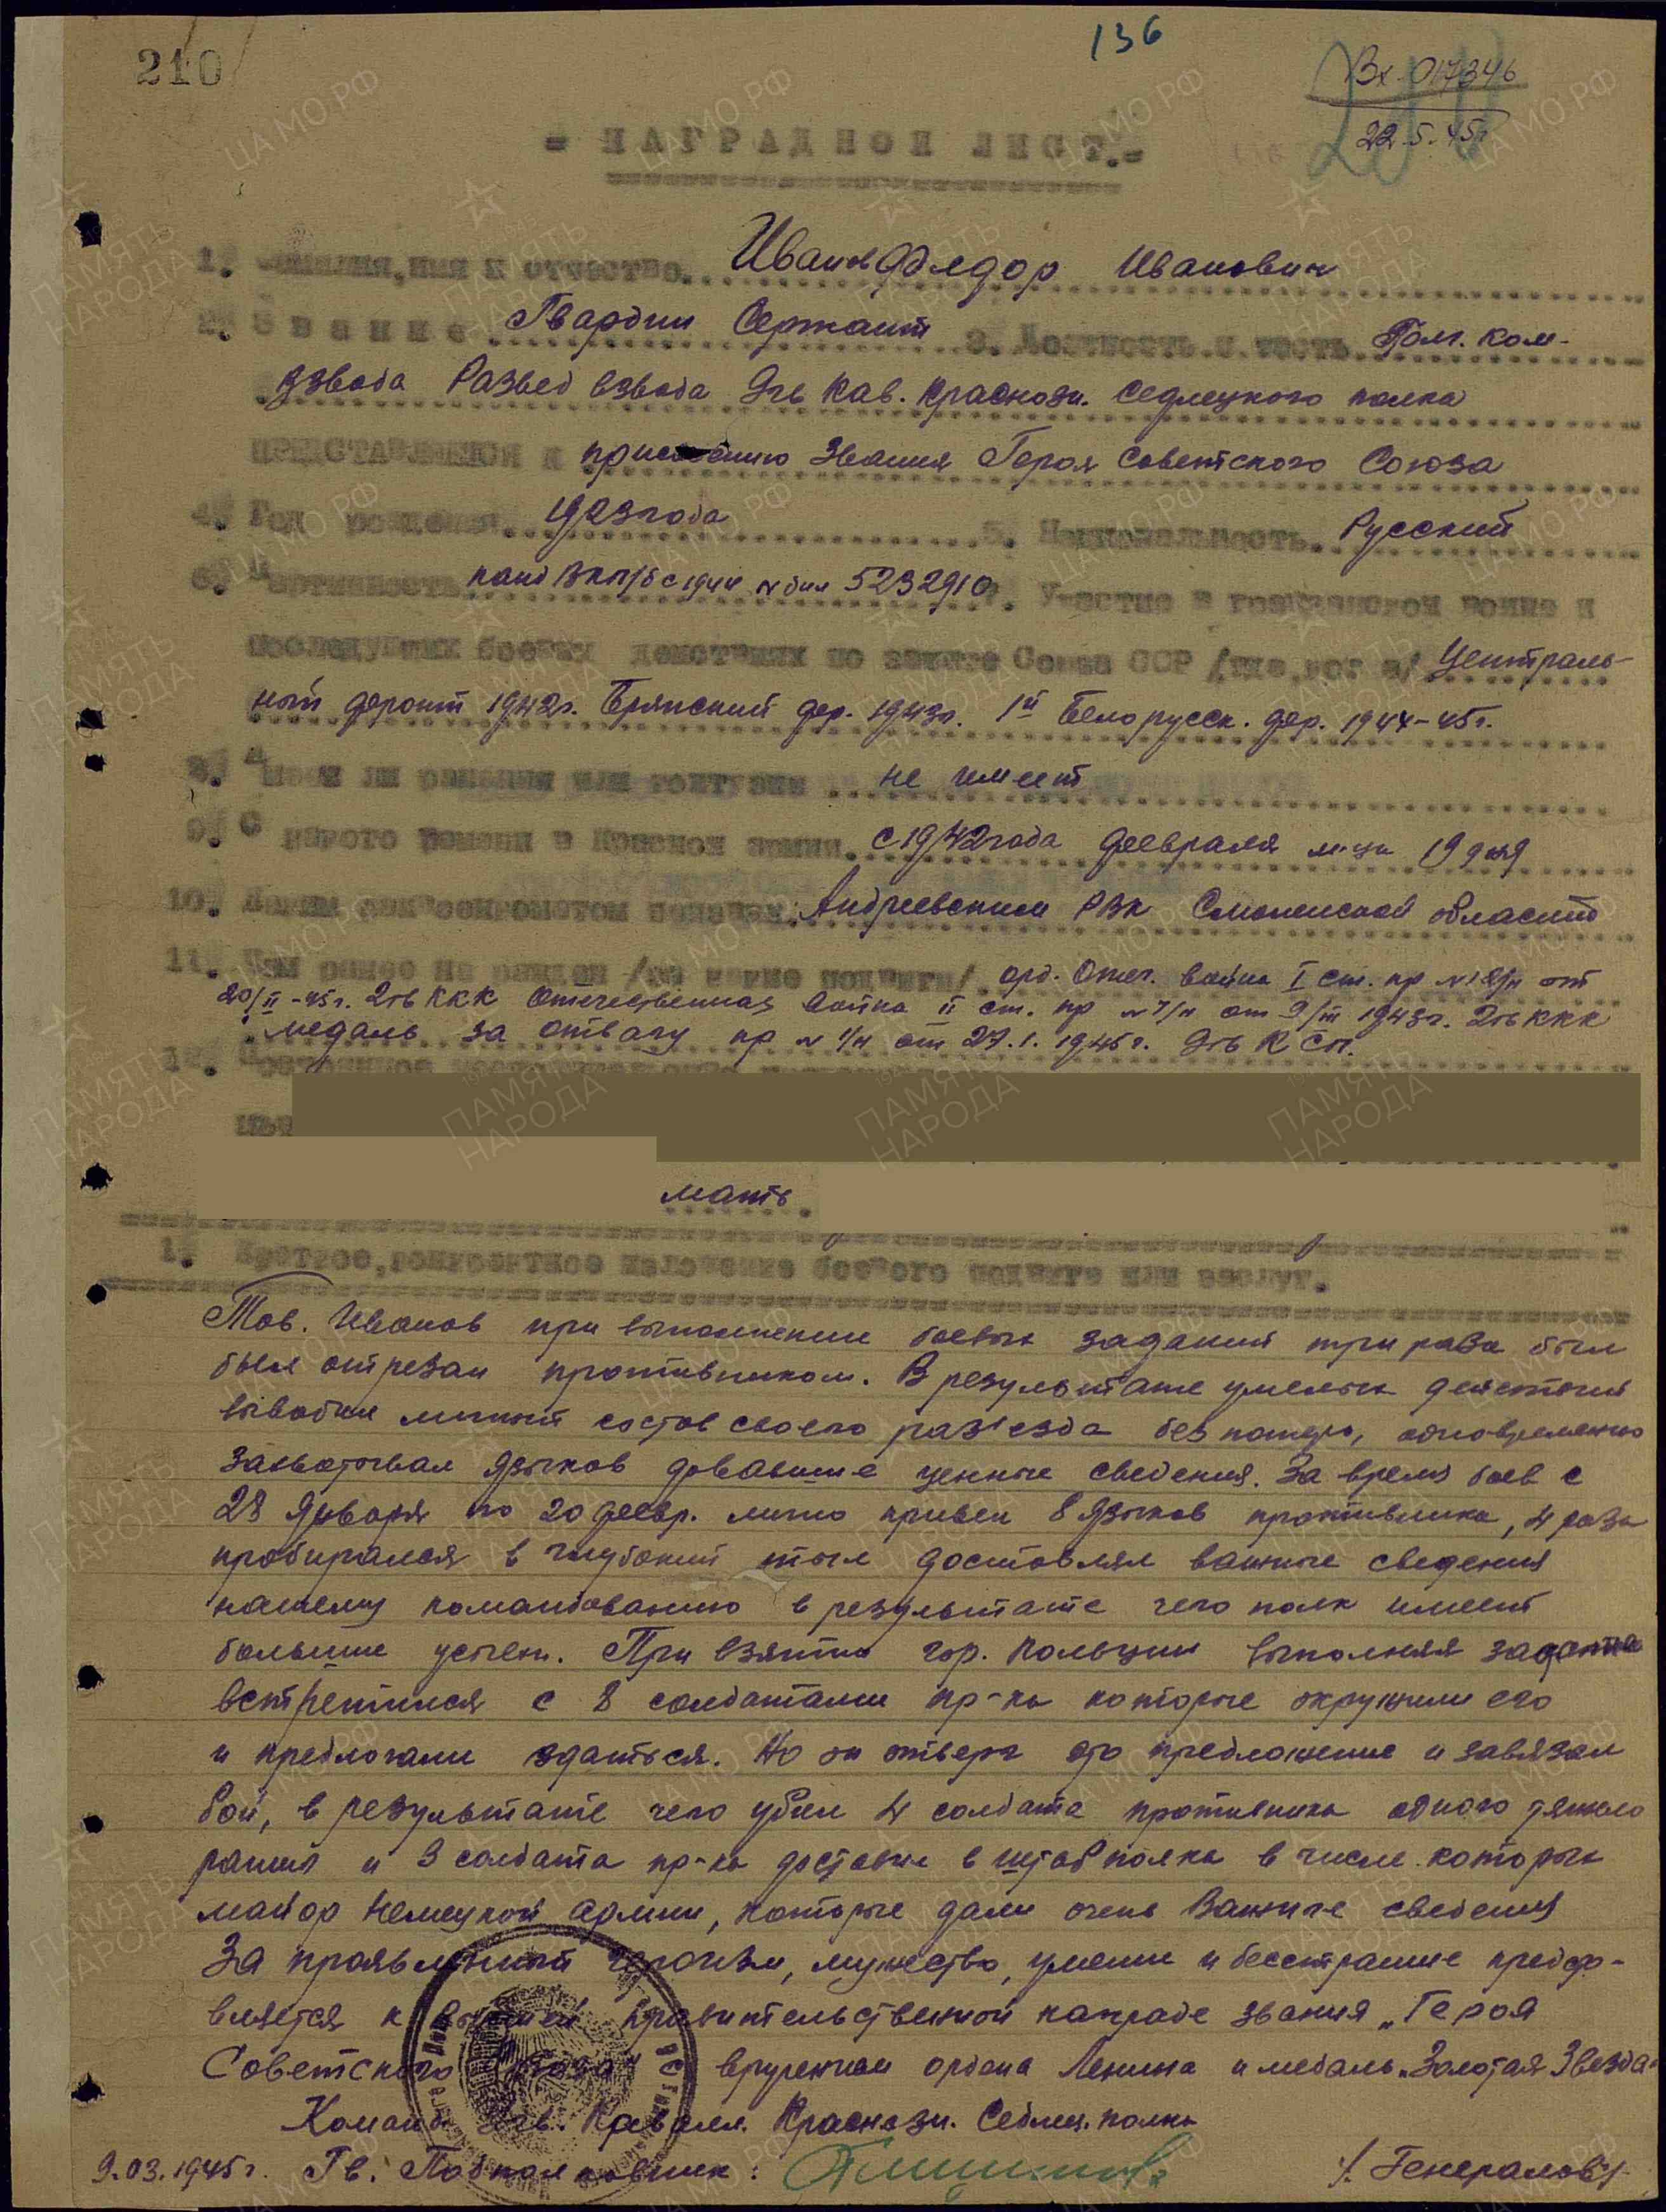 210
136
Вх 017346
22.5.45г
- НАГРАДНОЙ ЛИСТ.-
1. Фамилия, имя и отчество. Иванов Фёдор Иванович
2. Звание Гвардии Сержант 3. Должность и часть Пом. ком-
взвода Развед взвода Кав. Краснозн. Седлецкого полка
ПРЕДСТАВЛЯЕТСЯ к присвоению Звания Героя Советского Союза
4. Год рождения. 1923 года 5. Национальность. Русский
6. Партийность канд ВКП/б с 1944 N бил 5232910 7. Участие в гражданской войне и
последующих боевых действиях по защите Союза ССР /где, когда/ Централь-
ный фронт 1942г. Брянский фр. 1943г. 1й Белорусск. фр. 1944-45г.
8. Имеет ли ранения или контузии не имеет
9. С какого времени в Красной армии. с 1942 года февраля м-ца 19 дня
10. Каким райвоенкоматом призван. Андреевским РВК Смоленской областью
11. Чем ранее награжден /за какие подвиги/ орд. Отеч. война I ст. пр N 18/н от
20/II-45г. 2гв ККК Отечественная война II ст. пр N 7/н от 9/III 1943г. 2гв ККК
медаль за отвагу пр N 1/н от 27.1.1945г.
мать
Краткое, конкретное изложение боевого подвига или заслуг.
Тов. Иванов при выполнении боевых заданий три раза был
был отрезан противником. В результате умелых действий
выводил личный состов своего раз'езда без потерь, одновременно
захватывал языков довавшие ценные сведения. За время боев с
28 Января по 20 февр. лично привел 8 языков противника, 4 раза
пробирался в глубокий тыл доставлял важные сведения
нашему командованию в результате чего полк имеет
большие успехи. При взятии гор. Кольции выполняя задание
встретился с 8 солдатами пр-ка которые окружили его
и предлогали здаться. Но он отверг это предложение и завязал
бой, в результате чего убил 4 солдата противника одного тяжело
ранил и 3 солдата пр-ка доставил в штаб полка в числе которых
майор Немецкой армии, которые дали очень важные сведения
За проявленный героизм, мужество, умение и бесстрашие предста-
вляется к высшей правительственной награде звания „Героя
Советского Союза" с вручением ордена Ленина и медаль „Золотая Звезда"
Команд. Кавал. Краснозн. Седлец. полка
9.03.1945г. Гв. Подполковник: /Генералов/